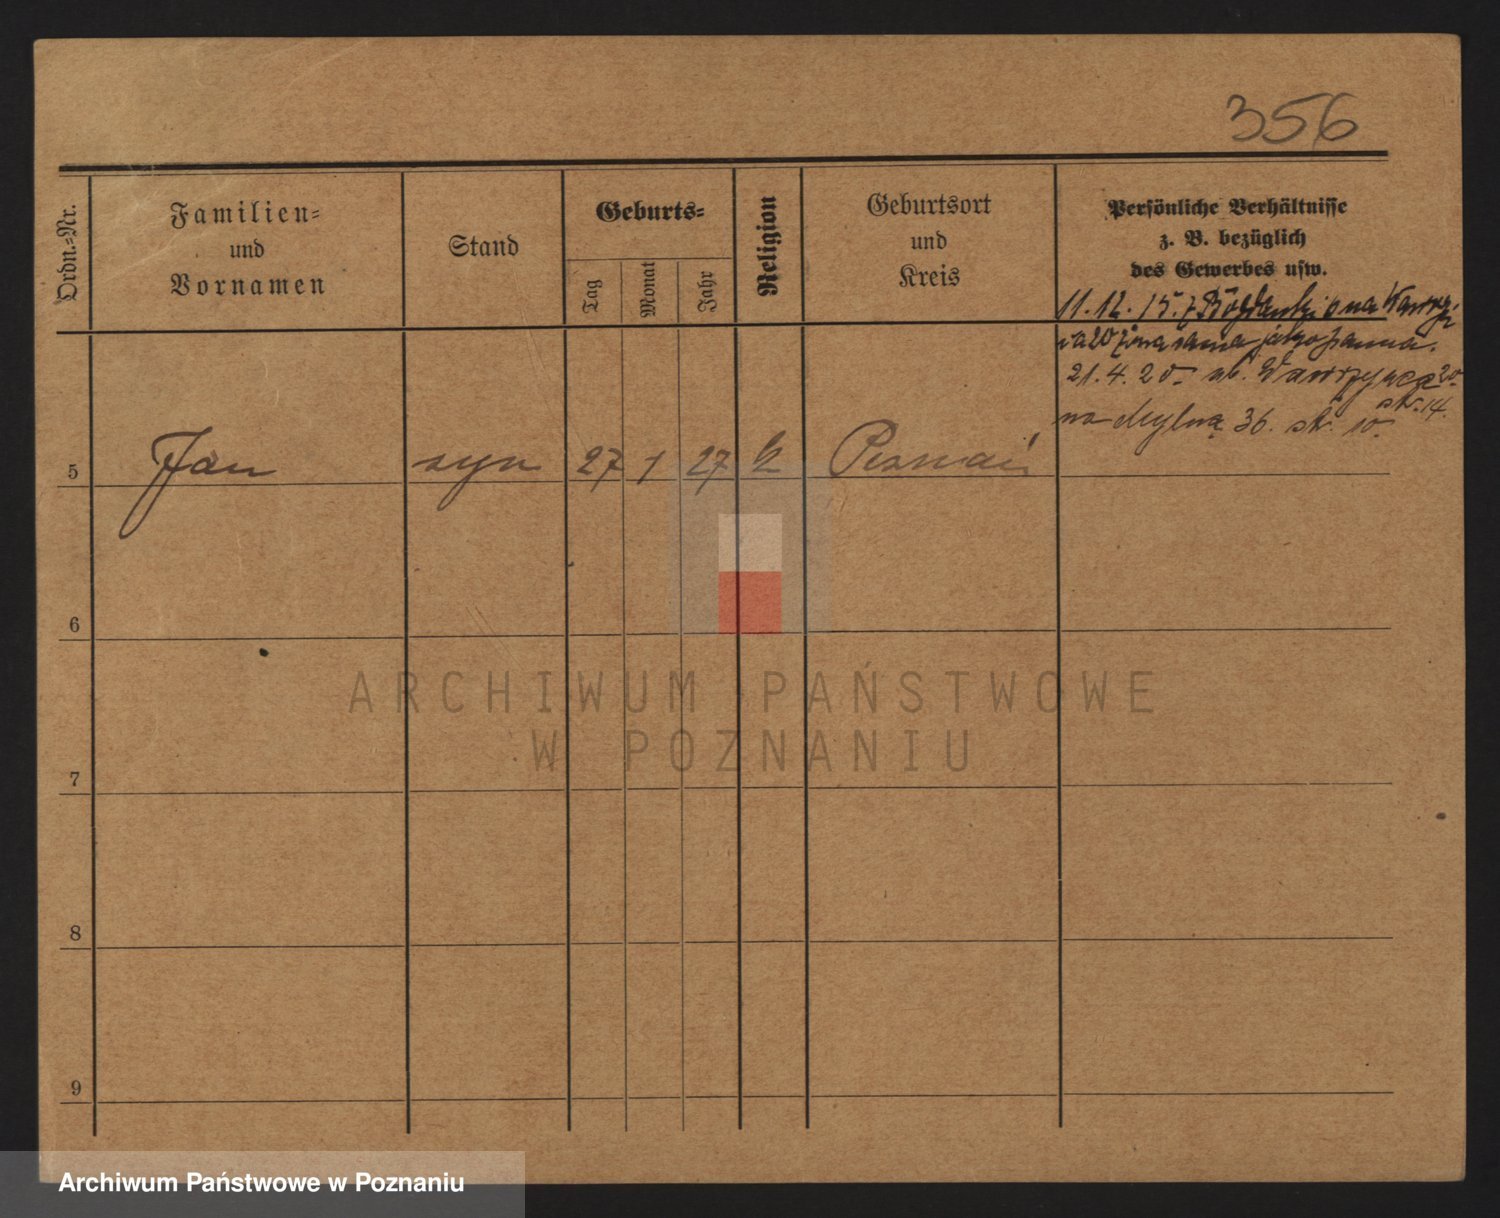 356
Ordn.-Nr.
Familien-
und
Vornamen
Stand
Geburts-
Tag
Monat
Jahr
Religion
Geburtsort
und
Kreis
Persönliche Verhältnisse
z. B. bezüglich
des Gewerbes usw.
11.12.15. z na Wawrzy
20 panna.
21.4.25. ul. Wawrzyńca 20
str. 14.
na Mylną 36. str. 10.
5 Jan syn 27 1 27 k Poznań
6
7
8
9
ARCHIWUM PAŃSTWOWE
W POZNANIU
Archiwum Państwowe w Poznaniu